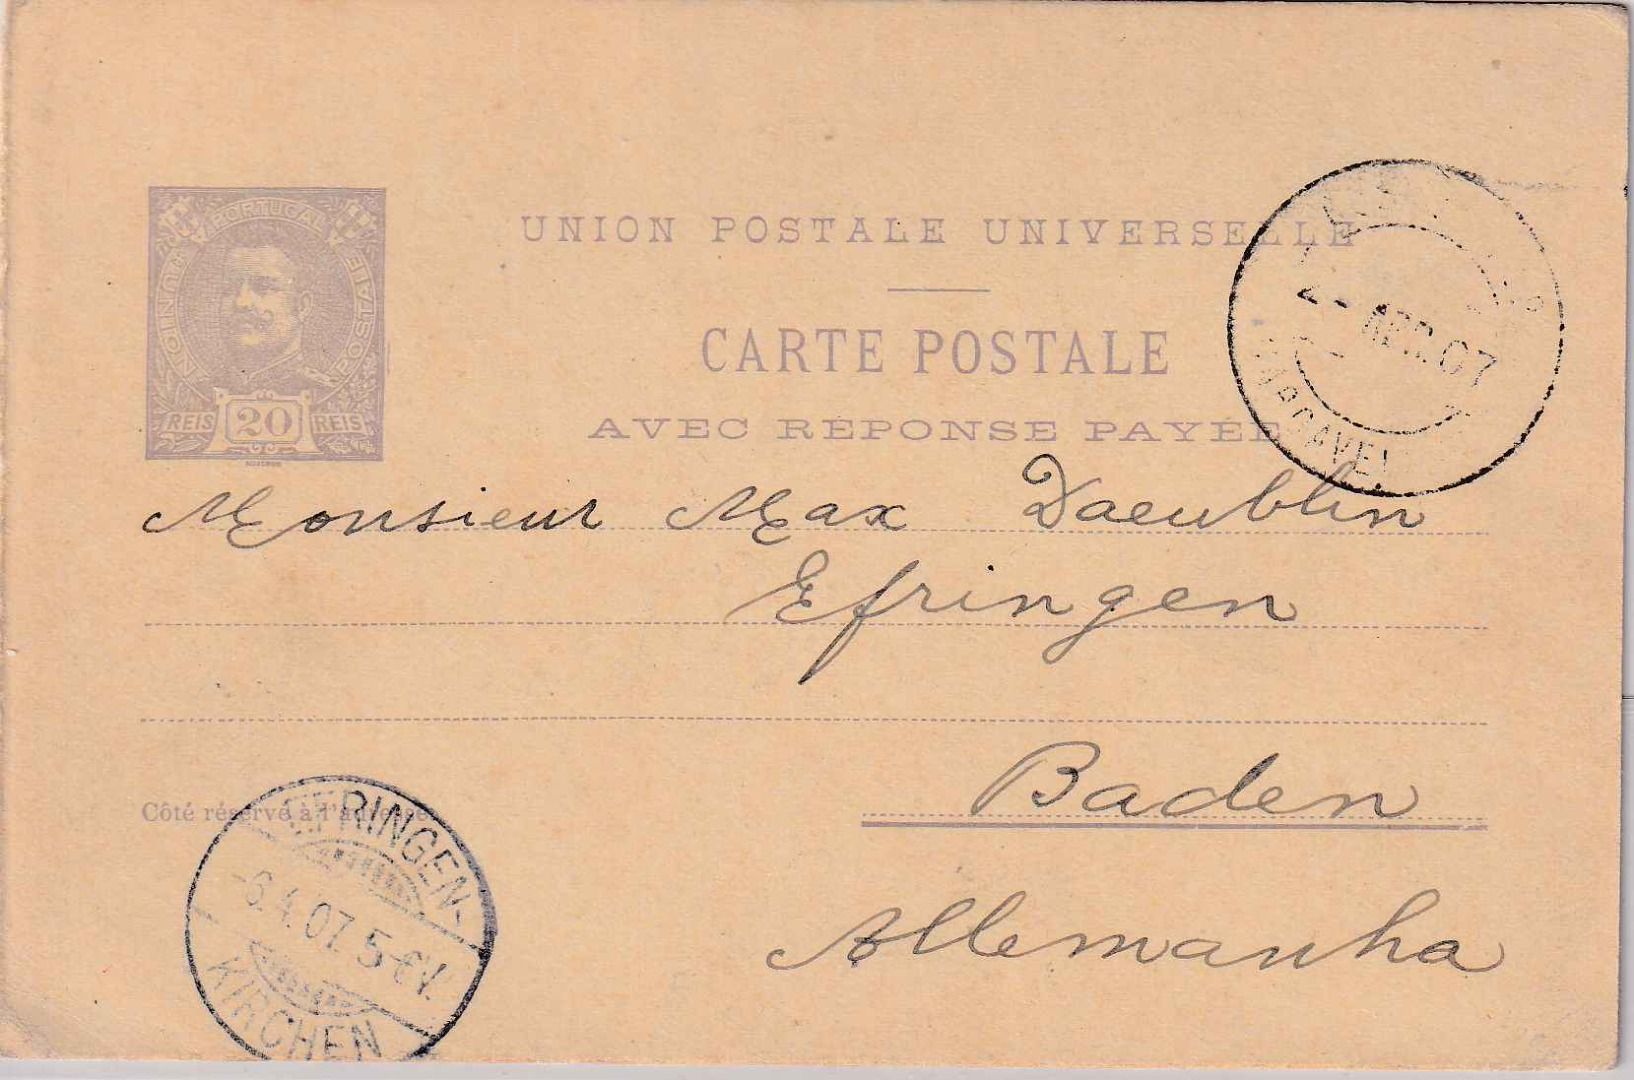 PORTUGAL
UNIÃO POSTAL UNION POSTALE
REIS 20 REIS
UNION POSTALE UNIVERSELLE
CARTE POSTALE
AVEC RÉPONSE PAYÉE
2 - ABR. 07
Monsieur Max Daeublin
Efringen
Baden
Allemanha
Côté réservé à l'adresse
EFRINGEN-
-6.4.07. 5-6V.
KIRCHEN